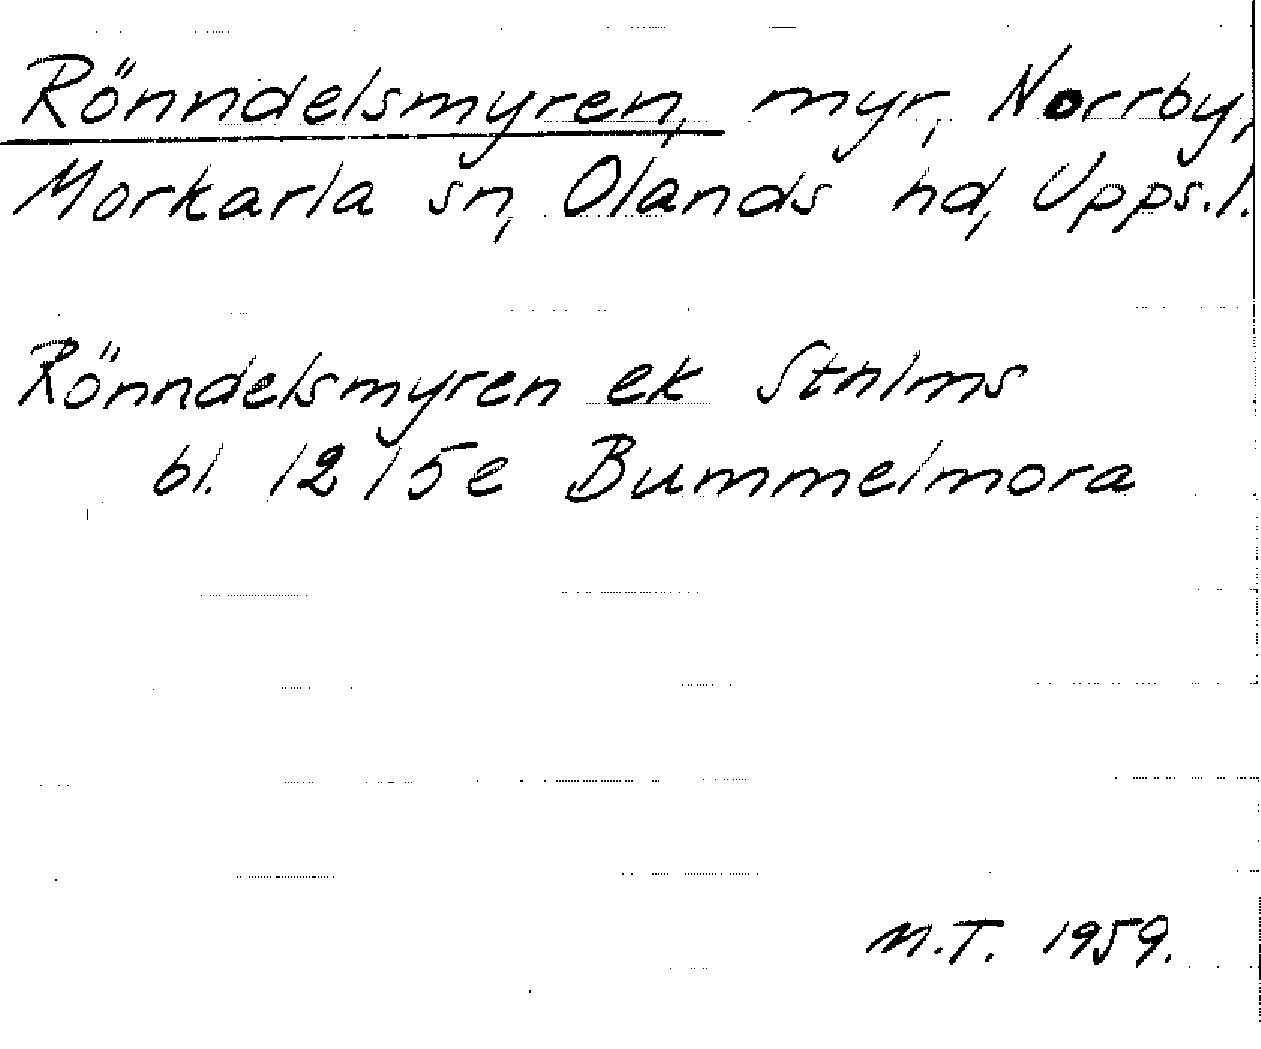 Rönndelsmyren, myr, Norrby,
Morkarla sn, Olands hd, Upps. l.
Rönndelsmyren ek Sthlms
bl. 12 I 5e Bummelmora
M.T. 1959.